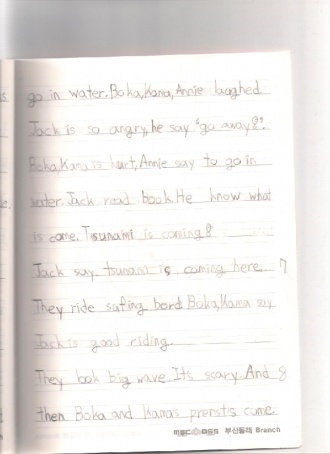 go in water. Boka, Kana, Annie laughed
Jack is so angry, he say "go away!".
Boka, Kana is hurt, Annie say to go in
water. Jack read book. He know what
is come. Tsunami is coming!
Jack say tsunami is coming here. 7
They ride sufing bord. Boka, Kama say
Jack is good riding.
They look big wave. Its scary. And 8
then Boka and Kama's prensts come.
부산동래 Branch